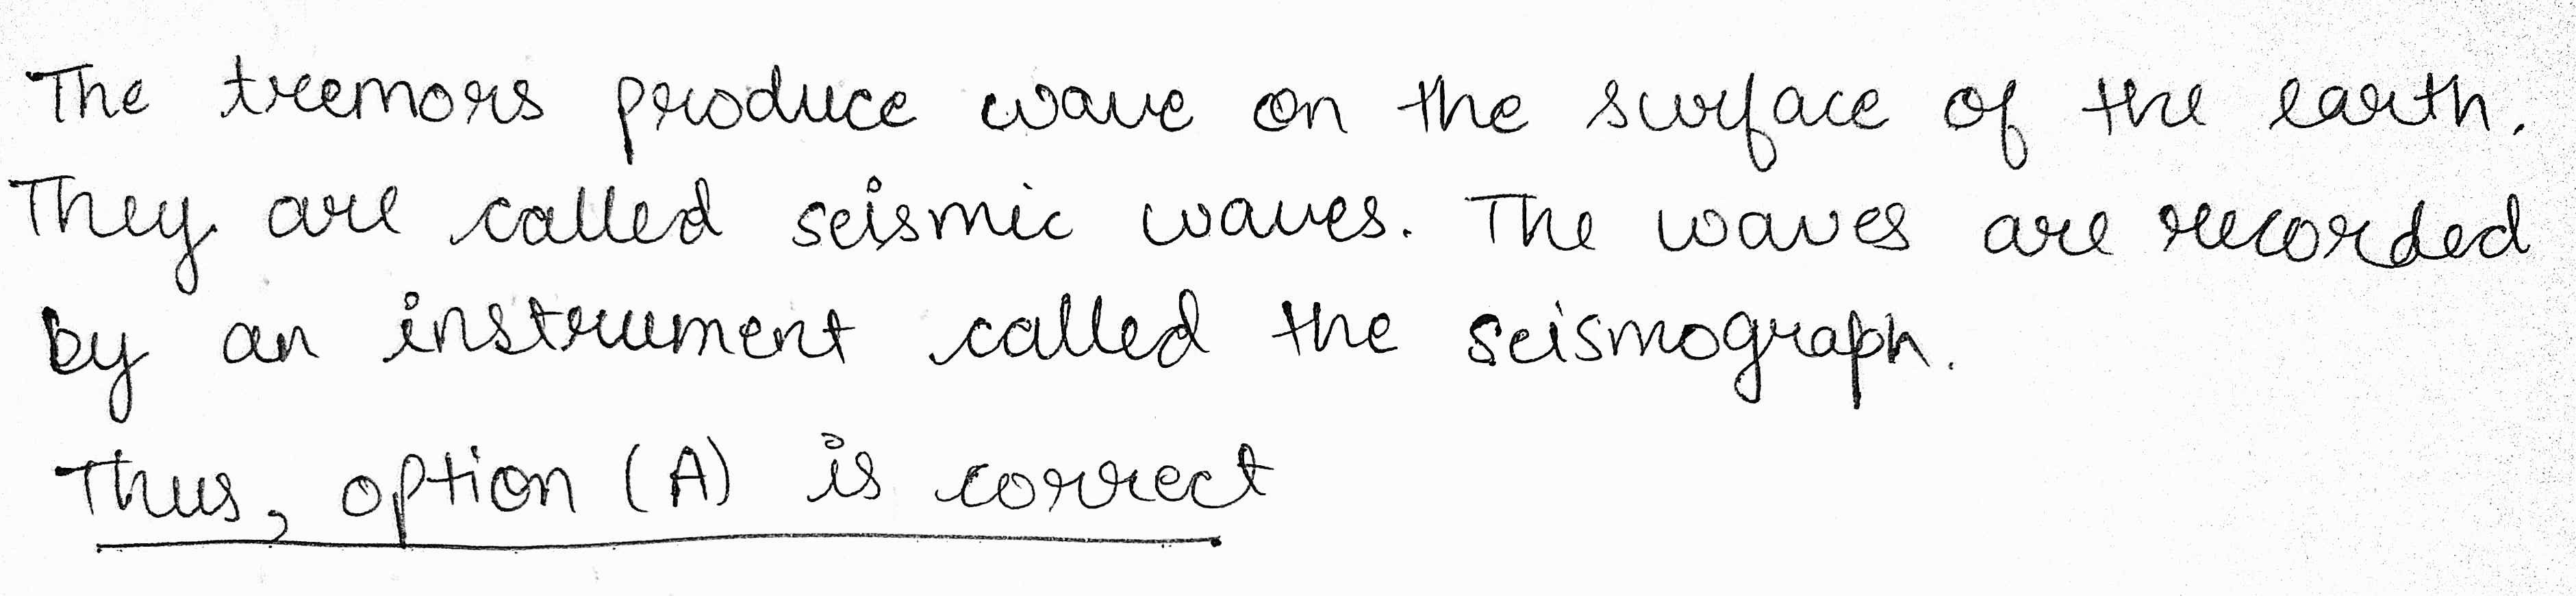 The tremors produce wave on the surface of the earth.
They are called seismic waves. The waves are recorded
by an instrument called the seismograph.
Thus, option (A) is correct